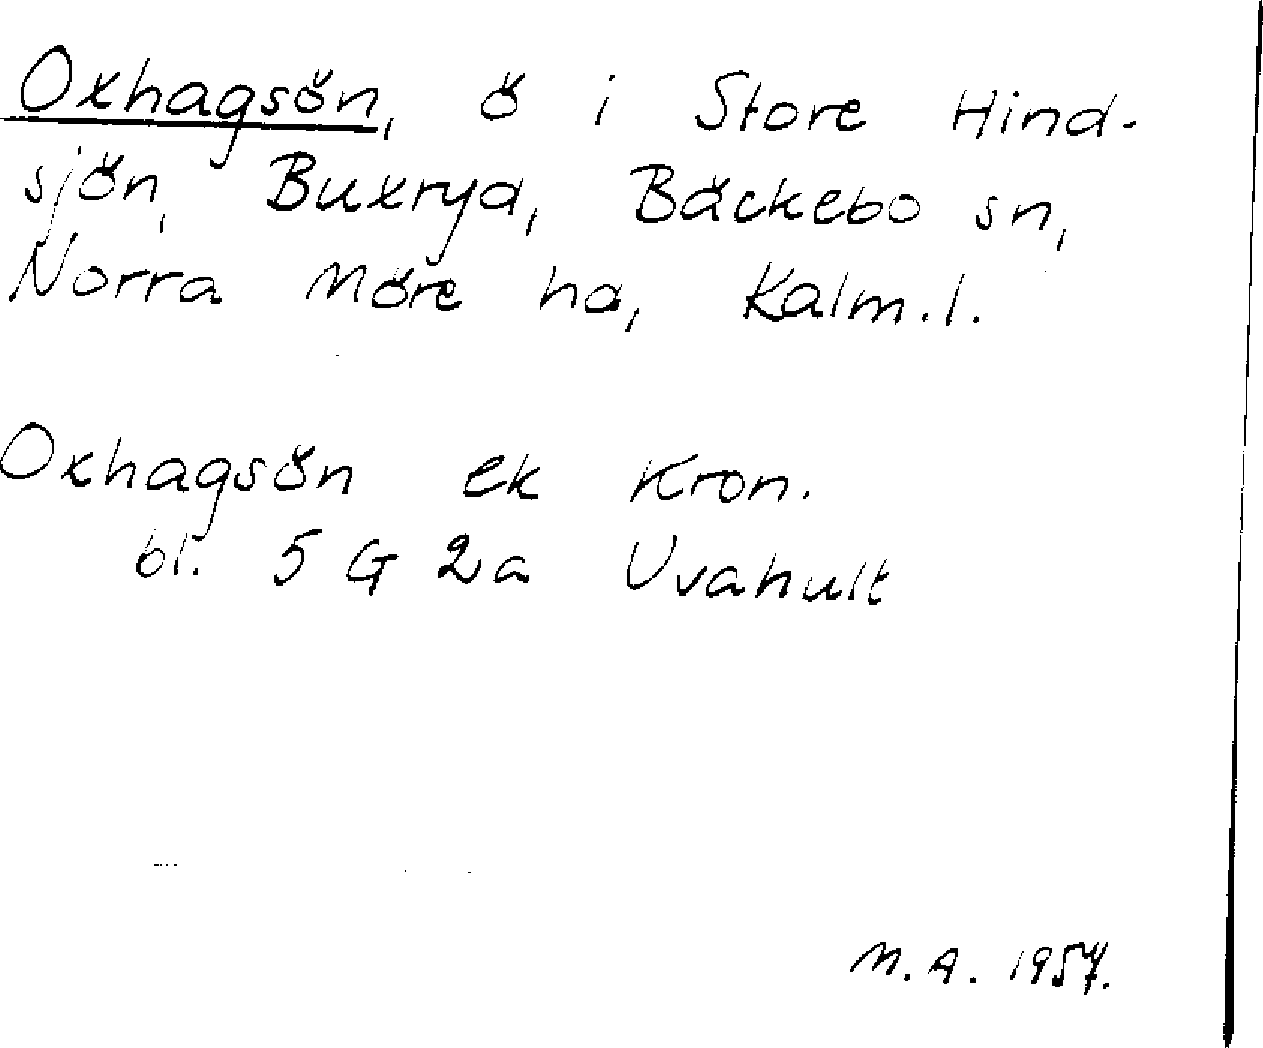 Oxhagsön, ö i Store Hind-
sjön, Buxryd, Bäckebo sn,
Norra Möre hd, Kalm.l.
Oxhagsön ek Kron.
bl. 5 G 2a Uvahult
M.A. 1957.